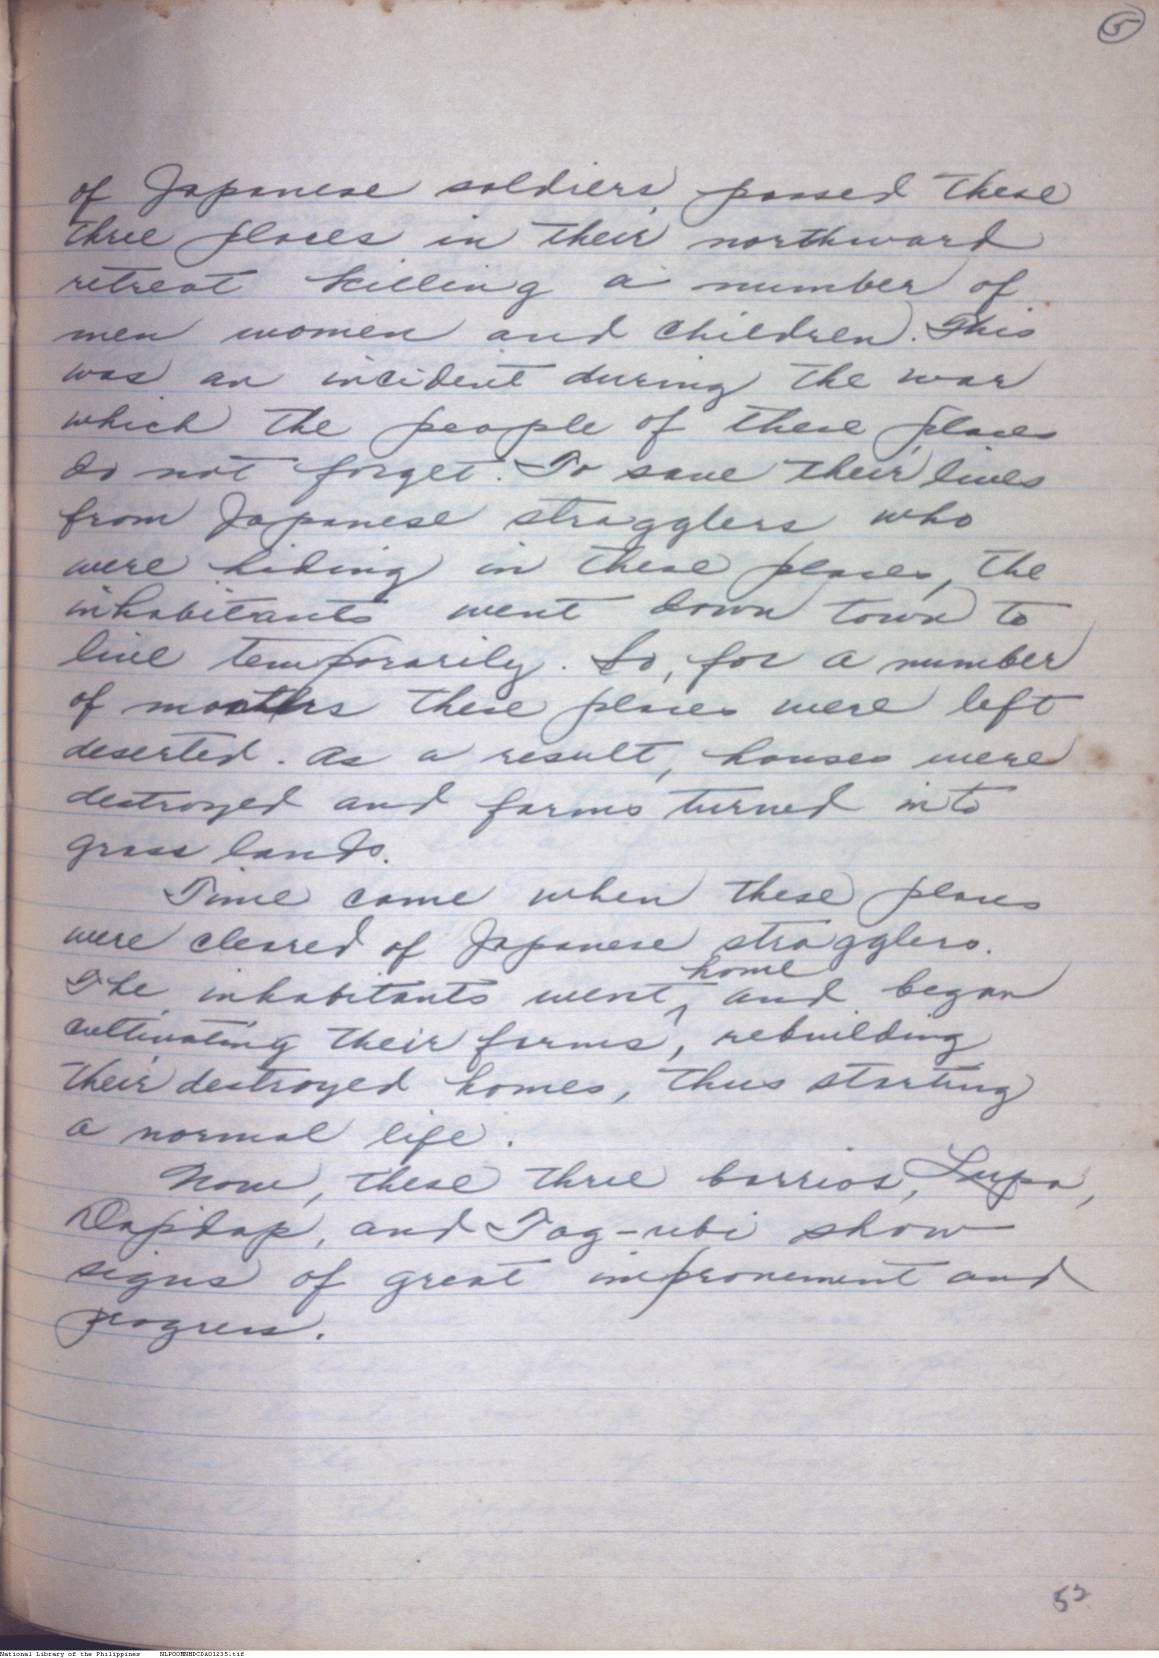 5
of Japanese soldiers, passed these
three places in their northward
retreat killing a number of
men women and children. This
was an incident during the war
which the people of these places
do not forget. To save their lives
from Japanese stragglers who
were hiding in these places, the
inhabitants went down town to
live temporarily. So, for a number
of months these places were left
deserted. As a result, houses were
destroyed and farms turned into
grass lands.
Time came when these places
were cleared of Japanese stragglers.
home
The inhabitants went ^ and began
cultivating their farms, rebuilding
their destroyed homes, thus starting
a normal life.
Now, these three barrios, Lupa,
Dapdap, and Tag-ubi show
signs of great improvement and
progress.
52
National Library of the Philippines NLPOOMNHDCDA01235.tif